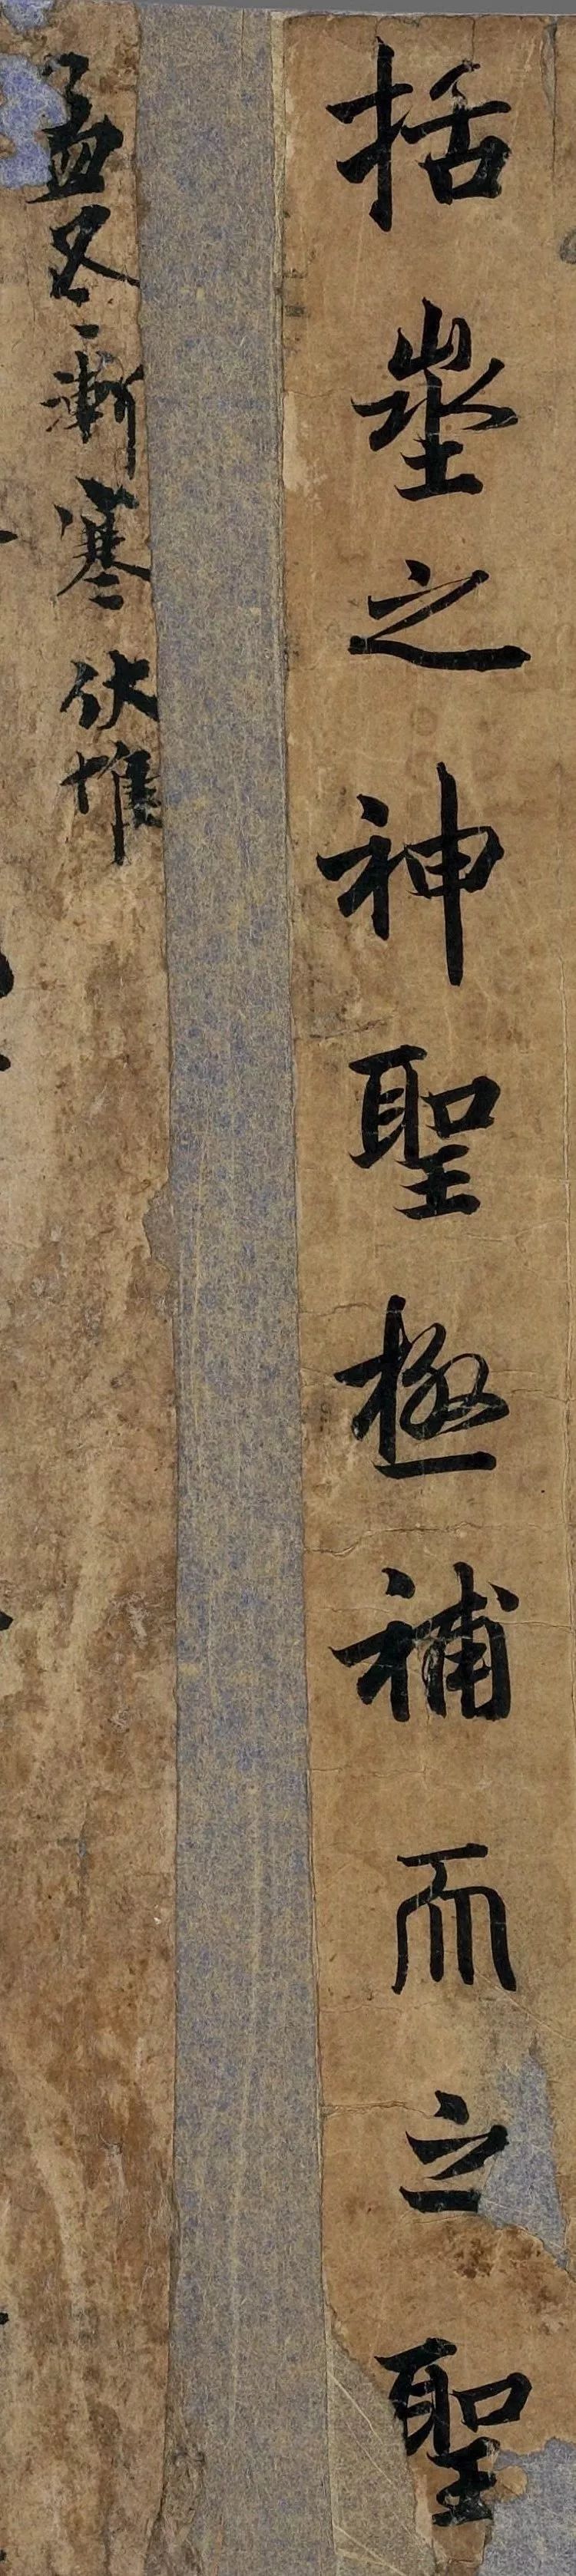 括埊之神聖極補而立聖
孟冬漸寒伏惟